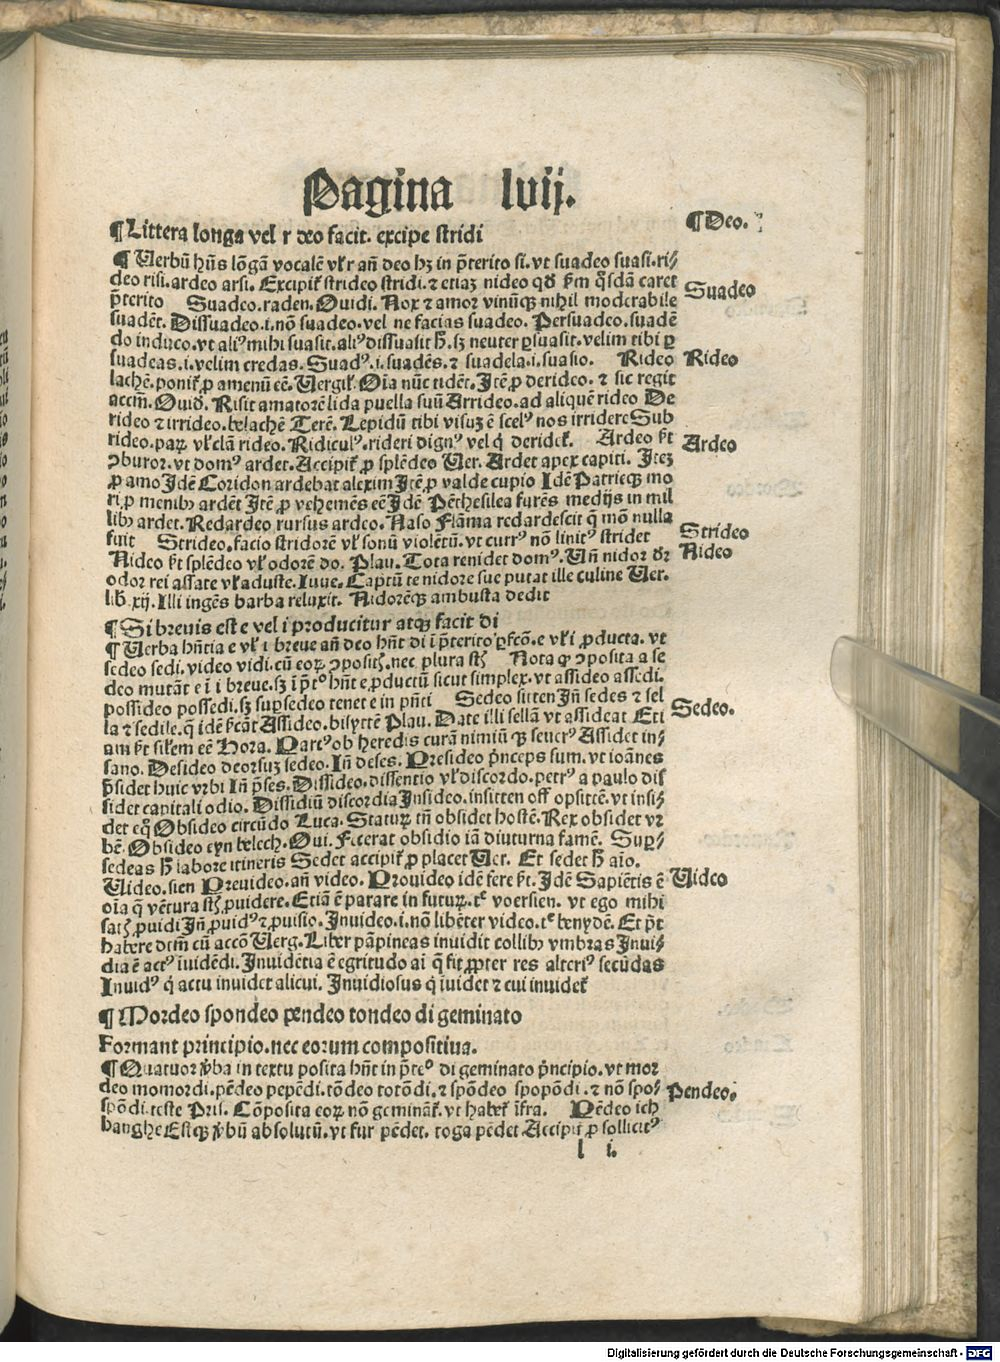 Pagina lvij.
¶ Littera longa vel r deo facit. excipe stridi
¶ Deo.
¶ Verbū hn̄s lōgā vocalē vl̕ r an̄ deo hꝫ in p̄terito si. vt suadeo suasi. ri⸗
deo risi. ardeo arsi. Excipit̕ strideo stridi. ⁊ etiaꝫ nideo qđ km̄ q̄sdā caret
p̄terito Suadeo. raden. Ouidi. Nox ⁊ amor vinūqꝫ nihil moderabile
Suadeo
suadēt. Dissuadeo. i. nō suadeo. vel ne facias suadeo. Persuadeo. suadē
do induco. vt ali⁹ mihi suasit. ali⁹ dissuasit h̄. sꝫ neuter ꝑsuasit. velim tibi ꝑ
suadeas. i. velim credas. Suad⁹. i. suadēs. ⁊ suadela. i. suasio. Rideo
Rideo
lachē. ponit̕ ꝓ amenū eē. Vergil̕. Oīa nūc ridēt. Itē ꝓ derideo. ⁊ sic regit
accm̄. Ouiđ. Risit amatorē lida puella suū Arrideo. ad aliquē rideo De
rideo ⁊ irrideo. belachē Terē. Lepidū tibi visuꝫ ē scel⁹ nos irridere Sub
rideo. paꝝ vl̕ clā rideo. Ridicul⁹. rideri dign⁹ vel q̇ deridet̕. Ardeo ē̕t
Ardeo
ꝯburor. vt dom⁹ ardet. Accipit̕ ꝓ splēdeo Uer. Ardet apex capiti. Iteꝫ
ꝓ amo Idē Coridon ardebat alexim Itē ꝓ valde cupio Idē Patrieqꝫ mo
ri ꝓ menibꝰ ardēt Itē ꝓ vehemēs eē Idē Pēthesilea furēs medijs in mil
libꝰ ardet. Redardeo rursus ardeo. Naso Flāma redardescit q̄ mō nulla
fuit Strideo. facio stridorē vl̕ sonū violētū. vt curr⁹ nō linit⁹ stridet
Strideo
Nideo ē̕t splēdeo vl̕ odorē do. Plau. Tota renidet dom⁹. Un̄ nidor đr
Nideo
odor rei assate vl̕ aduste. Iuue. Captū te nidore sue putat ille culine Uer.
lib̄. xij. Illi ingēs barba reluxit. Nidorēqꝫ ambusta dedit
¶ Si breuis est e vel i producitur atqꝫ facit di
¶ Verba hn̄tia e vl̕ i breue an̄ deo hn̄t di ī p̄terito ꝑfcō. e vl̕ i ꝓducta. vt
sedeo sedi. video vidi. cū eoꝝ ꝯpositꝭ. nec plura stꝭ Nota ꝙ ꝯposita a se
deo mutāt e ī i breue. sꝫ ī p̄t⁰ hn̄t e ꝓductū sicut simplex. vt assideo assedi.
possideo possedi. sꝫ suꝑsedeo tenet e in pn̄ti Sedeo sitten Jn̄ sedes ⁊ sel
Sedeo.
la ⁊ sedile. q̄ idē ē̕cāt Assideo. bisyttē Plau. Date illi sellā vt assideat Eti
am ē̕t sil̕em eē Hora. Parc⁹ ob heredis curā nimiū qꝫ seuer⁹ Assidet in⸗
sano. Desideo deorsuꝫ sedeo. In̄ deses. Presideo p̄nceps sum. vt ioānes
p̄sidet huic vrbi In̄ p̄ses. Dissideo. dissentio vl̕ discordo. petr⁹ a paulo dis
sidet capitali odio. Dissidiū discordia Insideo. insitten off opsittē. vt insi⸗
det eq̄ Obsideo circūdo Luca. Statuꝝ tn̄ obsidet hostē. Rex obsidet vr
bē. Obsideo eyn belech. Oui. Fecerat obsidio iā diuturna famē. Suꝑ⸗
sedeas h̄ labore itineris Sedet accipit̕ ꝓ placet Uer. Et sedet h̄ aīo.
Video. sien Preuideo. an̄ video. Prouideo idē fere ē̕t. Idē Sapiētis ē
Video
oīa q̄ vētura stꝭ ꝓuidere. Etiā ē parare in futuꝝ. tͨ voersien. vt ego mihi
satꝭ ꝓuidi Jn̄ ꝓuid⁹ ⁊ ꝓuisio. Inuideo. i. nō libēter video. tͨ benydē. Et p̄t
habere dtm̄ cū accō Verg. Liber pāpineas inuidit collibꝰ vmbras Inui⸗
dia ē act⁹ īuidēdi. Inuidētia ē egritudo aī q̄ fit ꝓpter res alteri⁹ secūdas
Inuid⁹ q̇ actu inuidet alicui. Inuidiosus q̇ īuidet ⁊ cui inuidet̕
¶ Mordeo spondeo pendeo tondeo di geminato
Formant principio. nec eorum compositiua.
¶ Quatuor v̄ba in textu posita hn̄t in p̄te⁰ di geminato p̄ncipio. vt mor
deo momordi. pēdeo pepēdi. tōdeo totōdi. ⁊ spōdeo spopōdi. ⁊ nō spo⸗
Pendeo.
spōdi. teste Pris. Cōposita eoꝝ nō geminā̕t. vt habet̕ īfra. Pēdeo ich
hanghe Estqꝫ v̄bū absolutū. vt fur pēdet. toga pēdet Accipit̕ ꝓ sollicit⁹
l i.
Digitalisierung gefördert durch die Deutsche Forschungsgemeinschaft - DFG